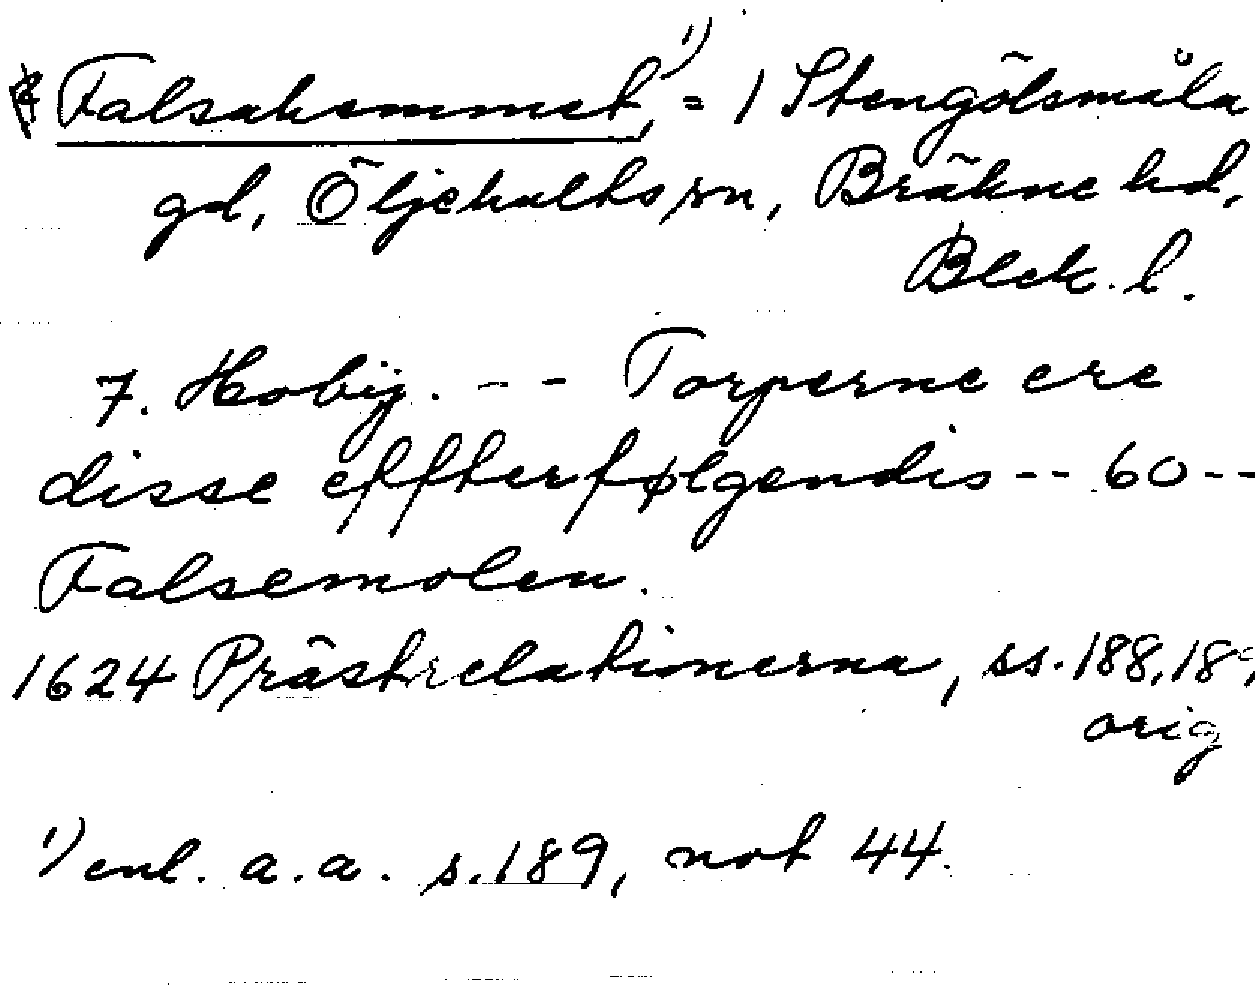 Falsahemmet,¹⁾ = 1 Stengölsmåla
gd, Öljehults sn, Bräkne hd,
Blek. l.
7. Hoby. - - Torperne ere
disse effterfølgendis - - 60 - -
Falsemolen.
1624 Prästrelationerna, ss. 188, 189,
orig
¹⁾ enl. a. a. s. 189, not 44.